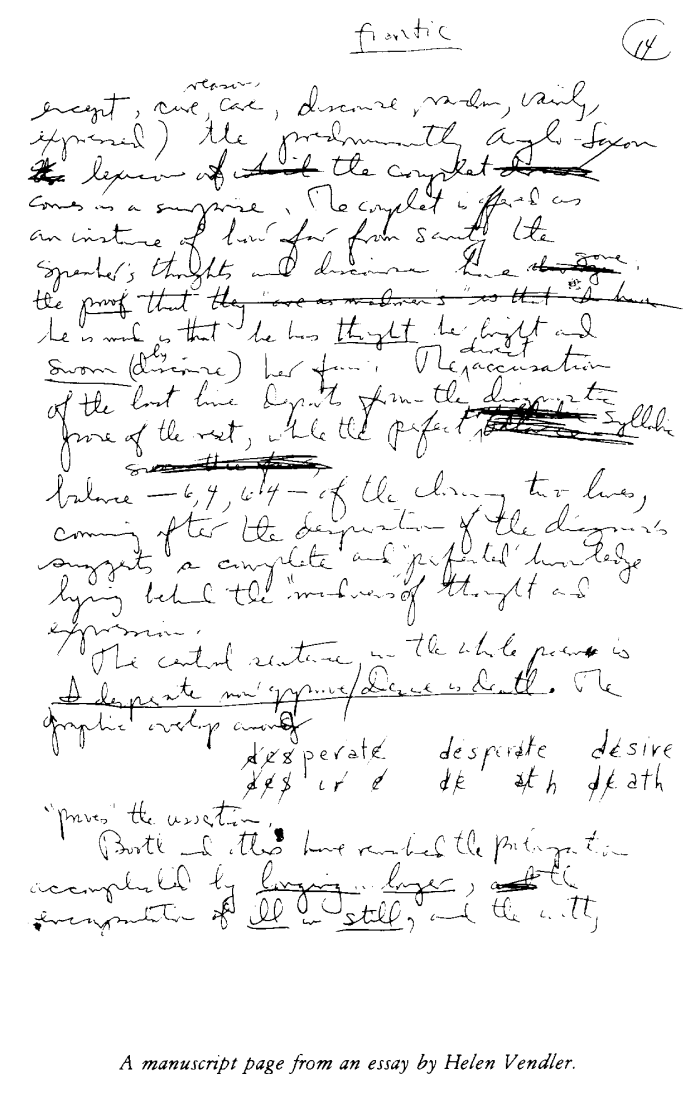 frantic
14
reason,
except, cure, care, discourse, random, vainly,
expressed) the predominantly Anglo-Saxon
lexicon of the couplet
comes as a surprise. The couplet is offered as
an instance of how far from sanity the
speaker's thoughts and discourse have gone.
the proof that they "are as madmen's" is that I have
he is mad is that he has thought her bright and
sworn (discourse) her fair. The direct accusation
of the last line departs from the diagnostic
prose of the rest, while the perfect syllabic
balance — 6,4, 6,4 — of the closing two lines,
coming after the desperation of the diagnosis
suggests a complete and "perfected" knowledge
lying behind the "madness" of thought and
expression.
The central sentence in the whole poem is
I desperate now approve/Desire is death. The
graphic overlap among
desperate desperate desire
desire de ath death
"proves" the assertion.
Booth and others have remarked the prolongation
accomplished by longing in longer, and the
encapsulation of ill in still, and the witty
A manuscript page from an essay by Helen Vendler.